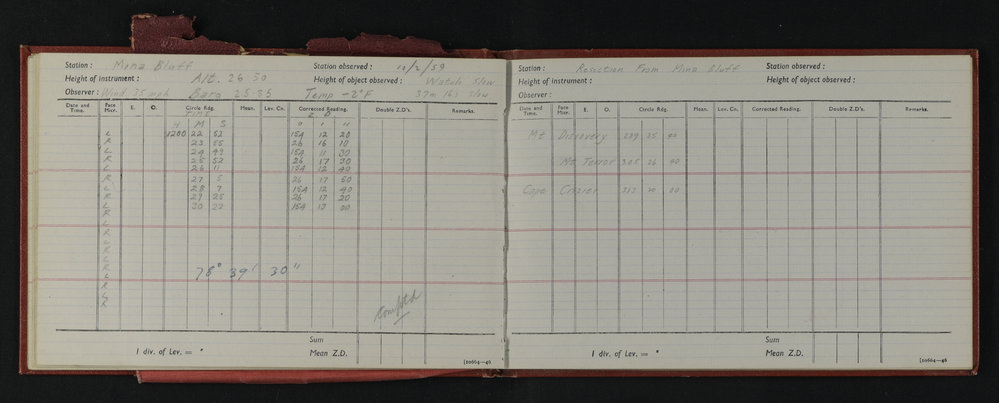 Station : Mina Bluff Station observed : 10/2/59
Height of instrument : Alt. 26 50 Height of object observed : Watch slow
Observer : Wind 35 mph Baro 25.85 Temp -2°F 37m 16s slow
Date and Time. Face Micr. E. O. Circle Rdg. Mean. Lev. Cn. Corrected Reading. Double Z.D's. Remarks.
TIME Z D
H M S ° ' "
L 1200 22 52 154 12 20
R 23 55 26 16 10
L 24 49 154 11 30
R 25 52 26 17 30
L 26 11 154 12 40
R 27 5 26 17 50
L 28 7 154 12 40
R 29 25 26 17 20
L 30 22 154 13 00
R
L
R
L
R
L
R
L 78° 39' 30"
R
L
R
Compt'd
Sum
1 div. of Lev. = " Mean Z.D.
[10664—46
Station : Resection From Mina Bluff Station observed :
Height of instrument : Height of object observed :
Observer :
Date and Time. Face Micr. E. O. Circle Rdg. Mean. Lev. Cn. Corrected Reading. Double Z.D's. Remarks.
Mt Discovery 25 00
Mt Terror 305 26 00
Cape Crozier 312 20 00
Sum
1 div. of Lev. = " Mean Z.D.
[10664—46